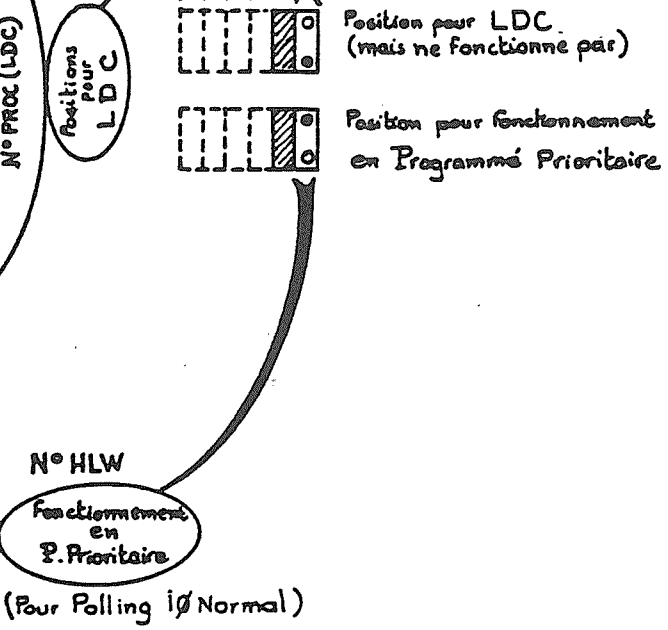 N° PROC (LDC)
Positions
pour
LDC
Position pour LDC.
(mais ne fonctionne par)
Position pour fonctionnement
en Programmé Prioritaire
N° HLW
Fonctionnement
en
P. Prioritaire
(Pour Polling iØ Normal)